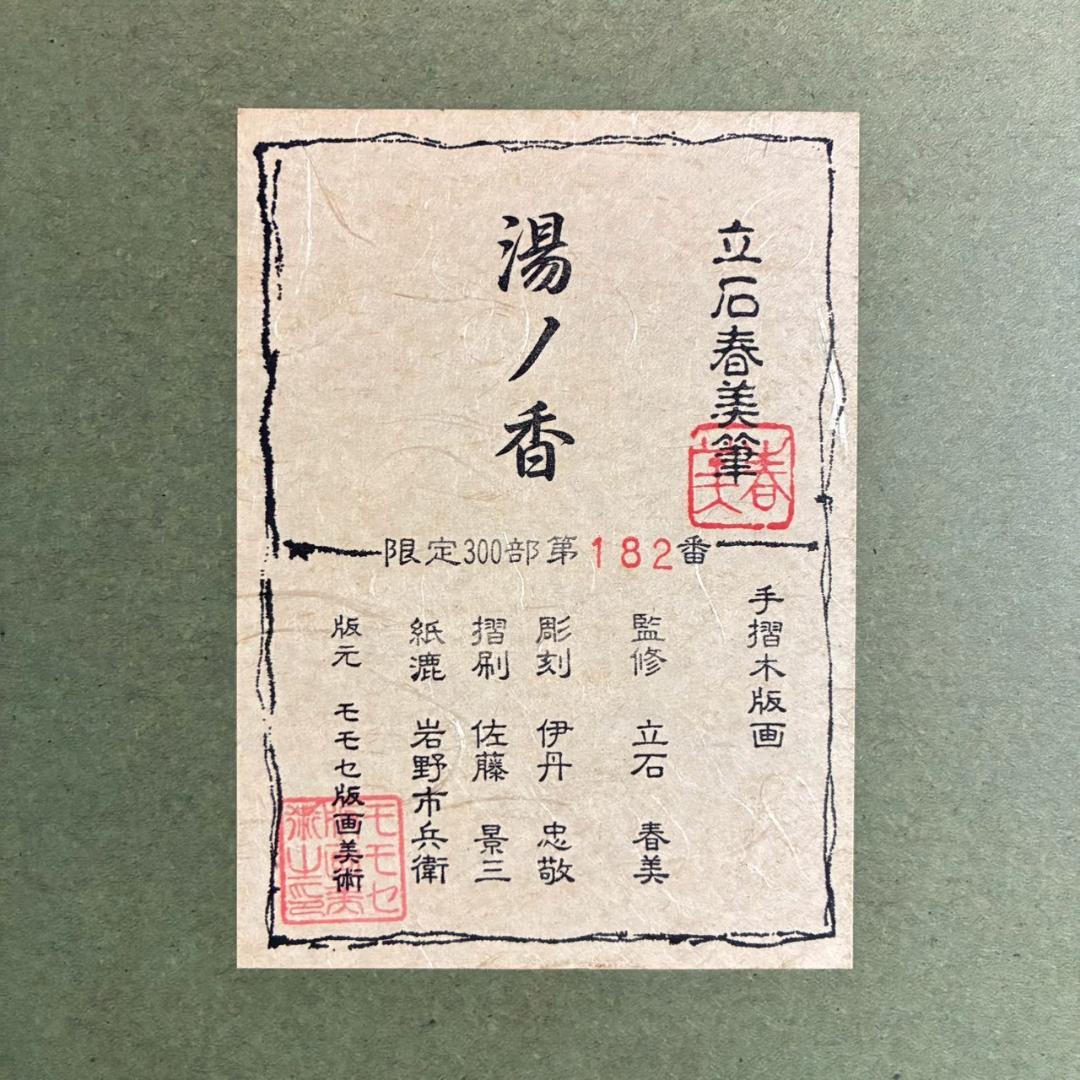 立石春美筆
春美
湯ノ香
限定300部第182番
手摺木版画
監修 立石 春美
彫刻 伊丹 忠敬
摺刷 佐藤 景三
紙漉 岩野市兵衛
版元 モモセ版画美術
モモセ版画美術之印